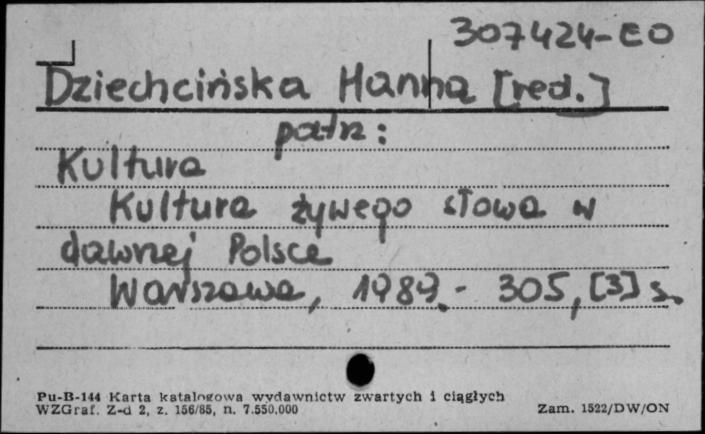 307424-EO
Dziechcińska Hanna [red.]
patrz:
Kultura
Kultura żywego słowa w
dawnej Polsce
Warszawa, 1989.- 305, [3] s.
Pu-B-144 Karta katalogowa wydawnictw zwartych i ciągłych
WZGraf. Z-d 2, z. 156/85, n. 7.550.000 Zam. 1522/DW/ON